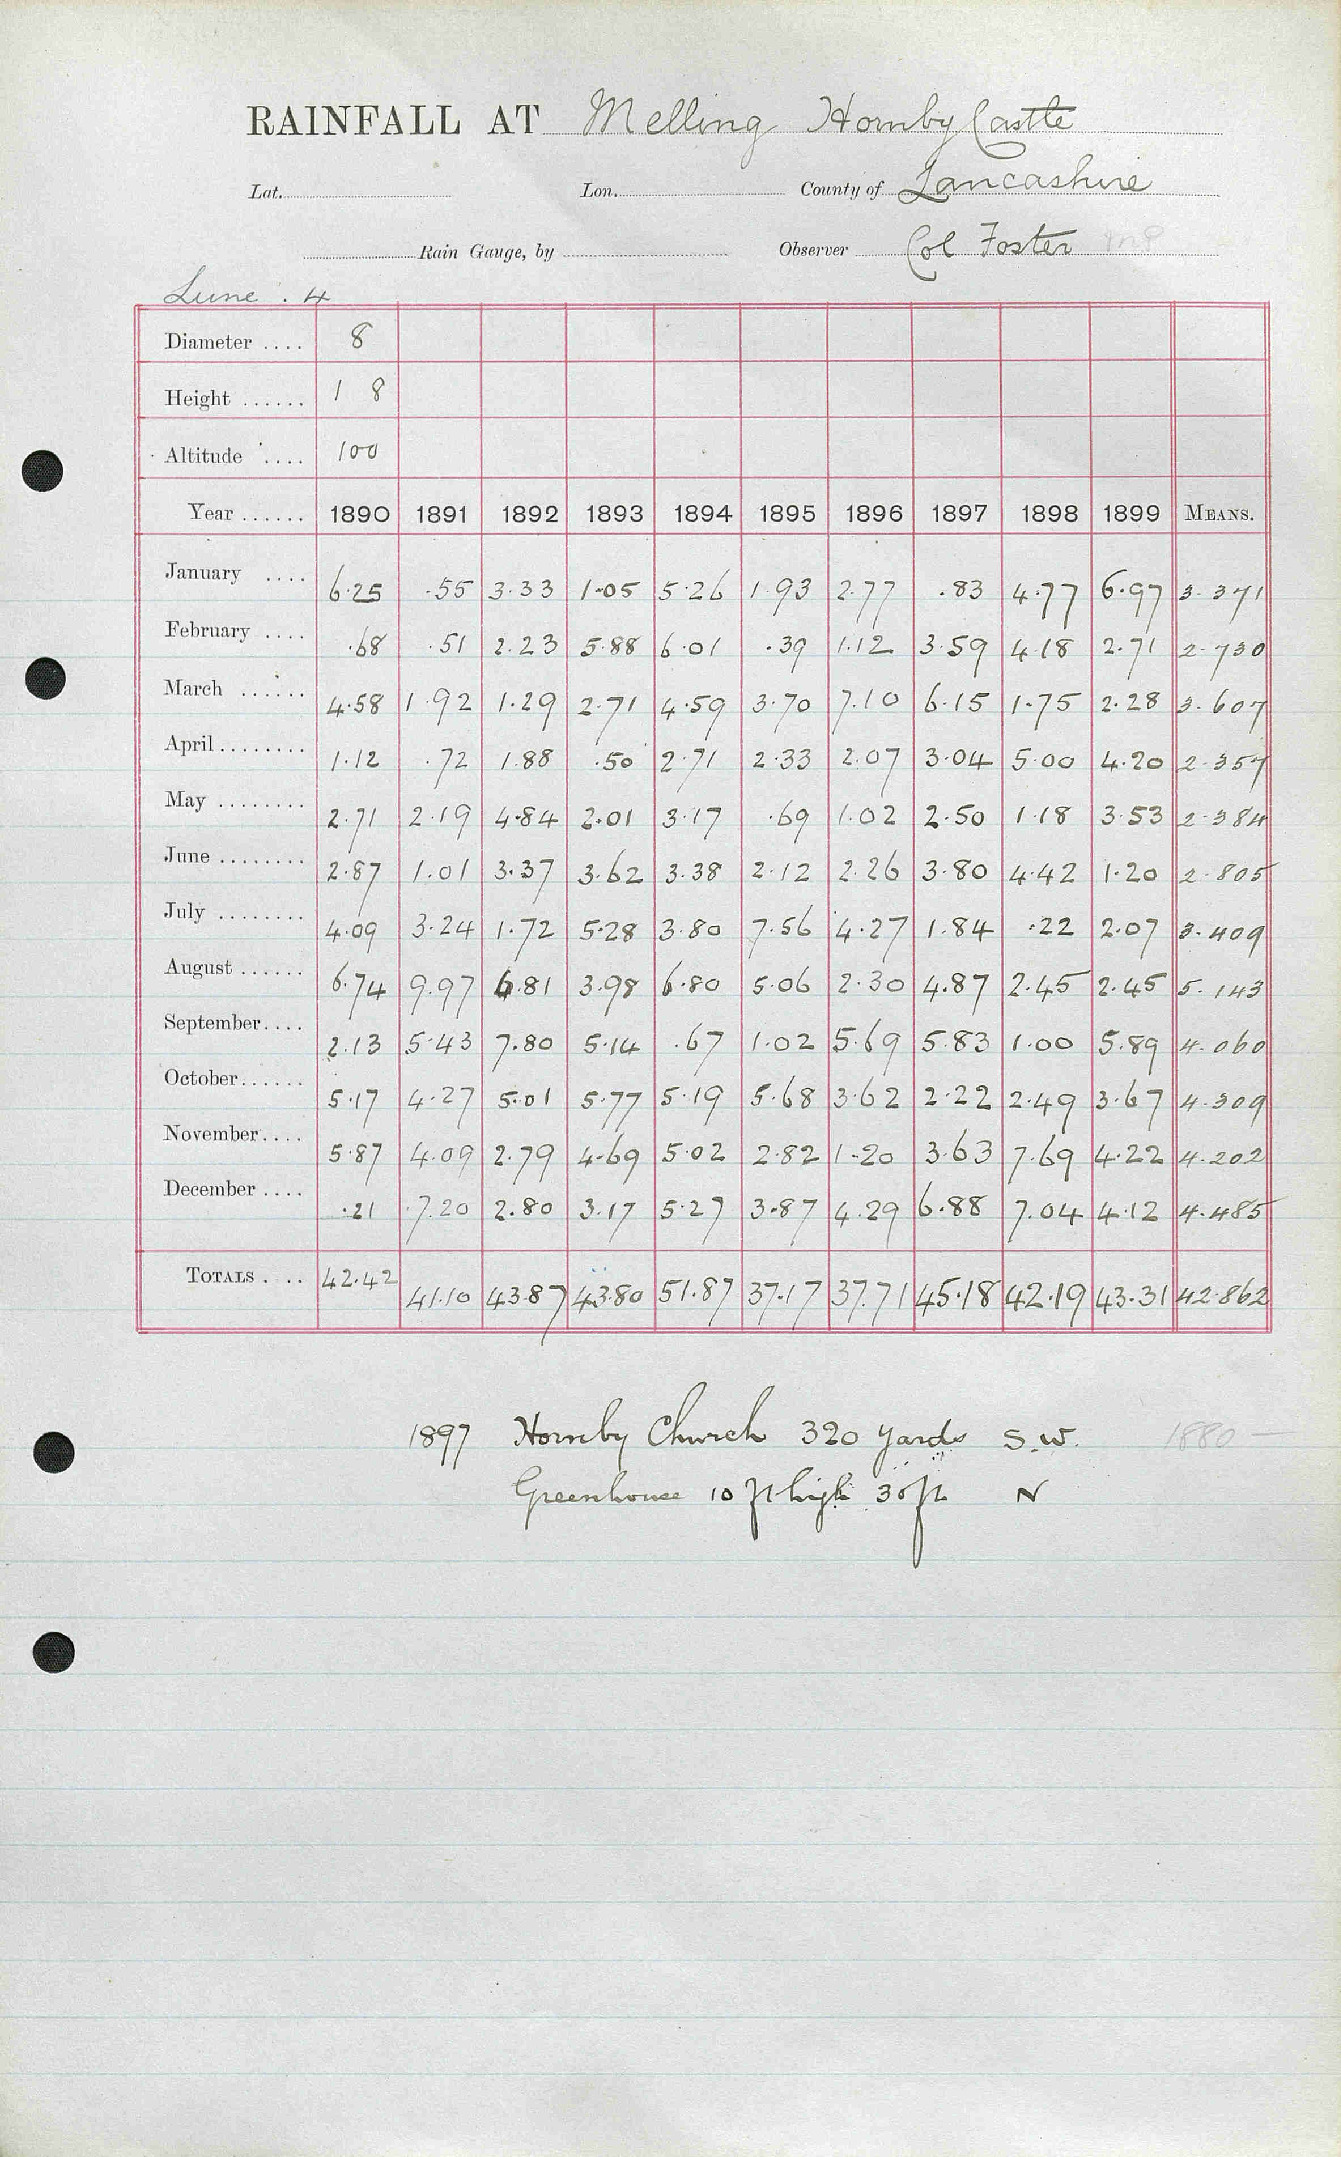 RAINFALL AT Melling Hornby Castle
Lat. Lon. County of Lancashire
Rain Gauge, by Observer Col Foster MP
Lune . 4
Diameter .... 8
Height ...... 1 8
Altitude .... 100
Year ...... 1890 1891 1892 1893 1894 1895 1896 1897 1898 1899 MEANS.
January .... 6.25 .55 3.33 1.05 5.26 1.93 2.77 .83 4.77 6.97 3.371
February .... .68 .51 2.23 5.88 6.01 .39 1.12 3.59 4.18 2.71 2.730
March ...... 4.58 1.92 1.29 2.71 4.59 3.70 7.10 6.15 1.75 2.28 3.607
April ........ 1.12 .72 1.88 .50 2.71 2.33 2.07 3.04 5.00 4.20 2.357
May ........ 2.71 2.19 4.84 2.01 3.17 .69 1.02 2.50 1.18 3.53 2.384
June ........ 2.87 1.01 3.37 3.62 3.38 2.12 2.26 3.80 4.42 1.20 2.805
July ........ 4.09 3.24 1.72 5.28 3.80 7.56 4.27 1.84 .22 2.07 3.409
August ...... 6.74 9.97 6.81 3.98 6.80 5.06 2.30 4.87 2.45 2.45 5.143
September.... 2.13 5.43 7.80 5.14 .67 1.02 5.69 5.83 1.00 5.89 4.060
October...... 5.17 4.27 5.01 5.77 5.19 5.68 3.62 2.22 2.49 3.67 4.309
November.... 5.87 4.09 2.79 4.69 5.02 2.82 1.20 3.63 7.69 4.22 4.202
December .... .21 7.20 2.80 3.17 5.27 3.87 4.29 6.88 7.04 4.12 4.485
TOTALS .... 42.42 41.10 43.87 43.80 51.87 37.17 37.71 45.18 42.19 43.31 42.862
1897 Hornby Church 320 yards S.W. 1880 —
Greenhouse 10 ft high 30 ft N